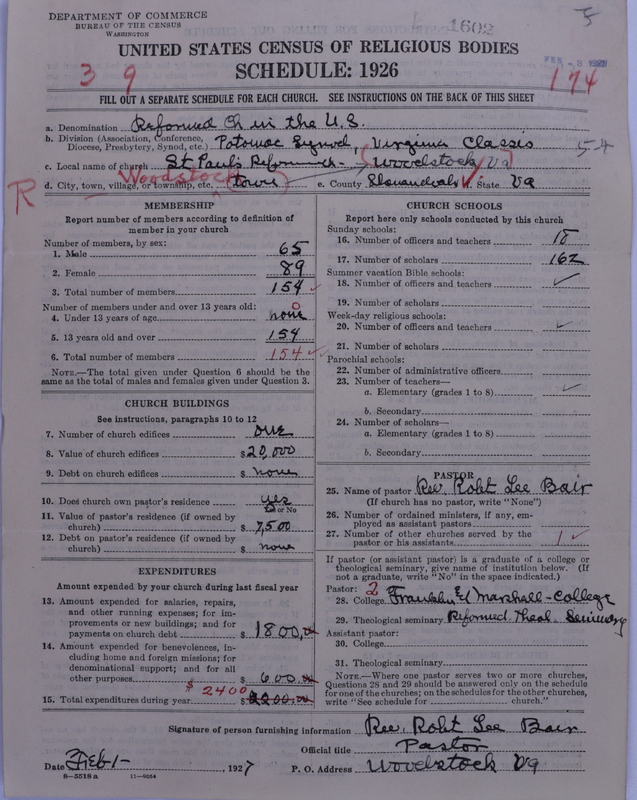 DEPARTMENT OF COMMERCE
BUREAU OF THE CENSUS
WASHINGTON
1602
UNITED STATES CENSUS OF RELIGIOUS BODIES
SCHEDULE: 1926
3 9
174
FILL OUT A SEPARATE SCHEDULE FOR EACH CHURCH. SEE INSTRUCTIONS ON THE BACK OF THIS SHEET
a. Denomination Reformed Ch in the U.S.
b. Division (Association, Conference, Diocese, Presbytery, Synod, etc.) Potomac Synod, Virginia Classis 54
c. Local name of church St Paul's Reformed - (Woodstock Va)
R d. City, town, village, or township, etc. Woodstock (town) e. County Shenandoah State Va
MEMBERSHIP
Report number of members according to definition of
member in your church
Number of members, by sex:
1. Male 65
2. Female 89
3. Total number of members 154
Number of members under and over 13 years old:
4. Under 13 years of age none 0
5. 13 years old and over 154
6. Total number of members 154
NOTE.—The total given under Question 6 should be the
same as the total of males and females given under Question 3.
CHURCH BUILDINGS
See instructions, paragraphs 10 to 12
7. Number of church edifices one
8. Value of church edifices $20,000
9. Debt on church edifices $ none
10. Does church own pastor's residence yes
Yes or No
11. Value of pastor's residence (if owned by
church) $ 7,500
12. Debt on pastor's residence (if owned by
church) $ none
EXPENDITURES
Amount expended by your church during last fiscal year
13. Amount expended for salaries, repairs,
and other running expenses; for im-
provements or new buildings; and for
payments on church debt $ 1800.00
14. Amount expended for benevolences, in-
cluding home and foreign missions; for
denominational support; and for all
other purposes $ 600.00
$ 2400
15. Total expenditures during year $
CHURCH SCHOOLS
Report here only schools conducted by this church
Sunday schools:
16. Number of officers and teachers 18
17. Number of scholars 162
Summer vacation Bible schools:
18. Number of officers and teachers
19. Number of scholars
Week-day religious schools:
20. Number of officers and teachers
21. Number of scholars
Parochial schools:
22. Number of administrative officers
23. Number of teachers—
a. Elementary (grades 1 to 8)
b. Secondary
24. Number of scholars—
a. Elementary (grades 1 to 8)
b. Secondary
PASTOR
25. Name of pastor Rev. Robt Lee Bair
(If church has no pastor, write "None")
26. Number of ordained ministers, if any, em-
ployed as assistant pastors
27. Number of other churches served by the
pastor or his assistants 1
If pastor (or assistant pastor) is a graduate of a college or
theological seminary, give name of institution below. (If
not a graduate, write "No" in the space indicated.)
Pastor: 2
28. College Franklin & Marshall-College
29. Theological seminary Reformed Theol. Seminary
Assistant pastor:
30. College
31. Theological seminary
NOTE.—Where one pastor serves two or more churches,
Questions 28 and 29 should be answered only on the schedule
for one of the churches; on the schedules for the other churches,
write "See schedule for ____ church."
Signature of person furnishing information Rev. Robt Lee Bair
Official title Pastor
Date Feb 1-, 1927 P. O. Address Woodstock Va
8-5518 a 11-9054